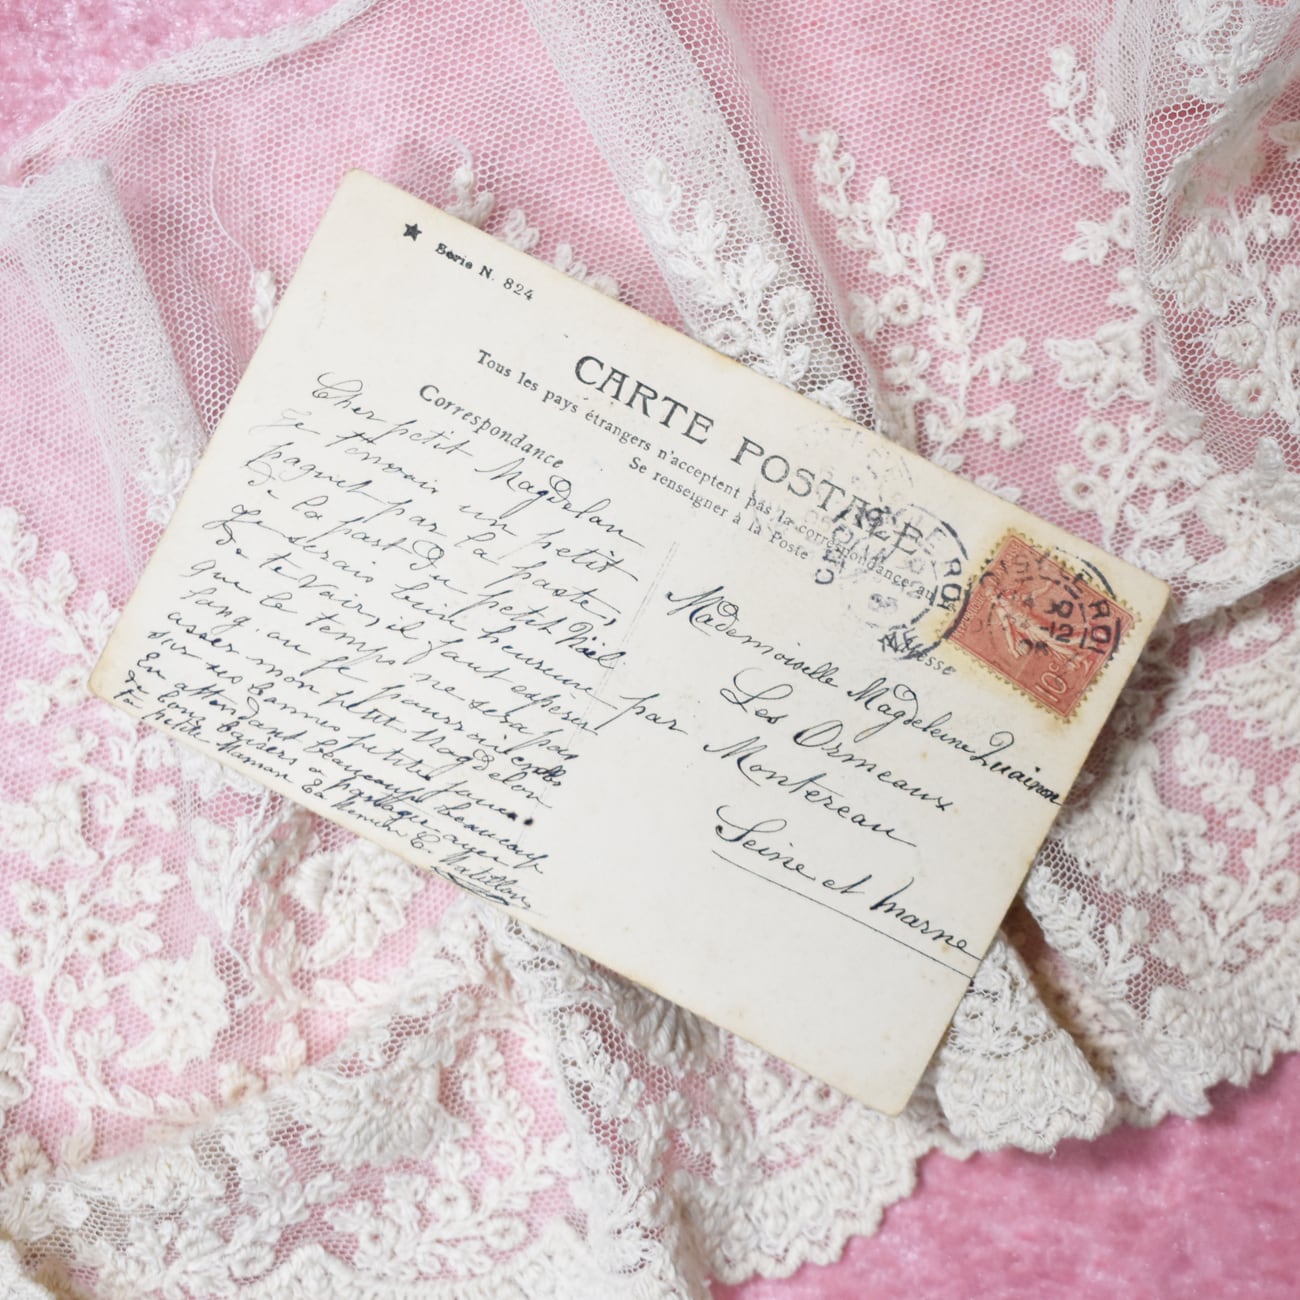 ★ Série N. 824
CARTE POSTALE
Tous les pays étrangers n'acceptent pas la correspondance au
Se renseigner à la Poste
Correspondance
Adresse
Cher petit Magdelan
Je t'envoir un petit
paquet par la poste,
de la part du petit Nöel.
Je serais bien heureuse
de te voir, il faut espérer
que le temps ne sera pas
long, ou je pourrai
asses mon petit Magdelon
sur tes bonnes petites joues.
En attendant beaucoup beaucoup
de bons baisers a partager avec
ta petite Maman
Mademoiselle Magdeleine Quainon
Les Ormeaux
par Montereau
Seine et Marne
10c